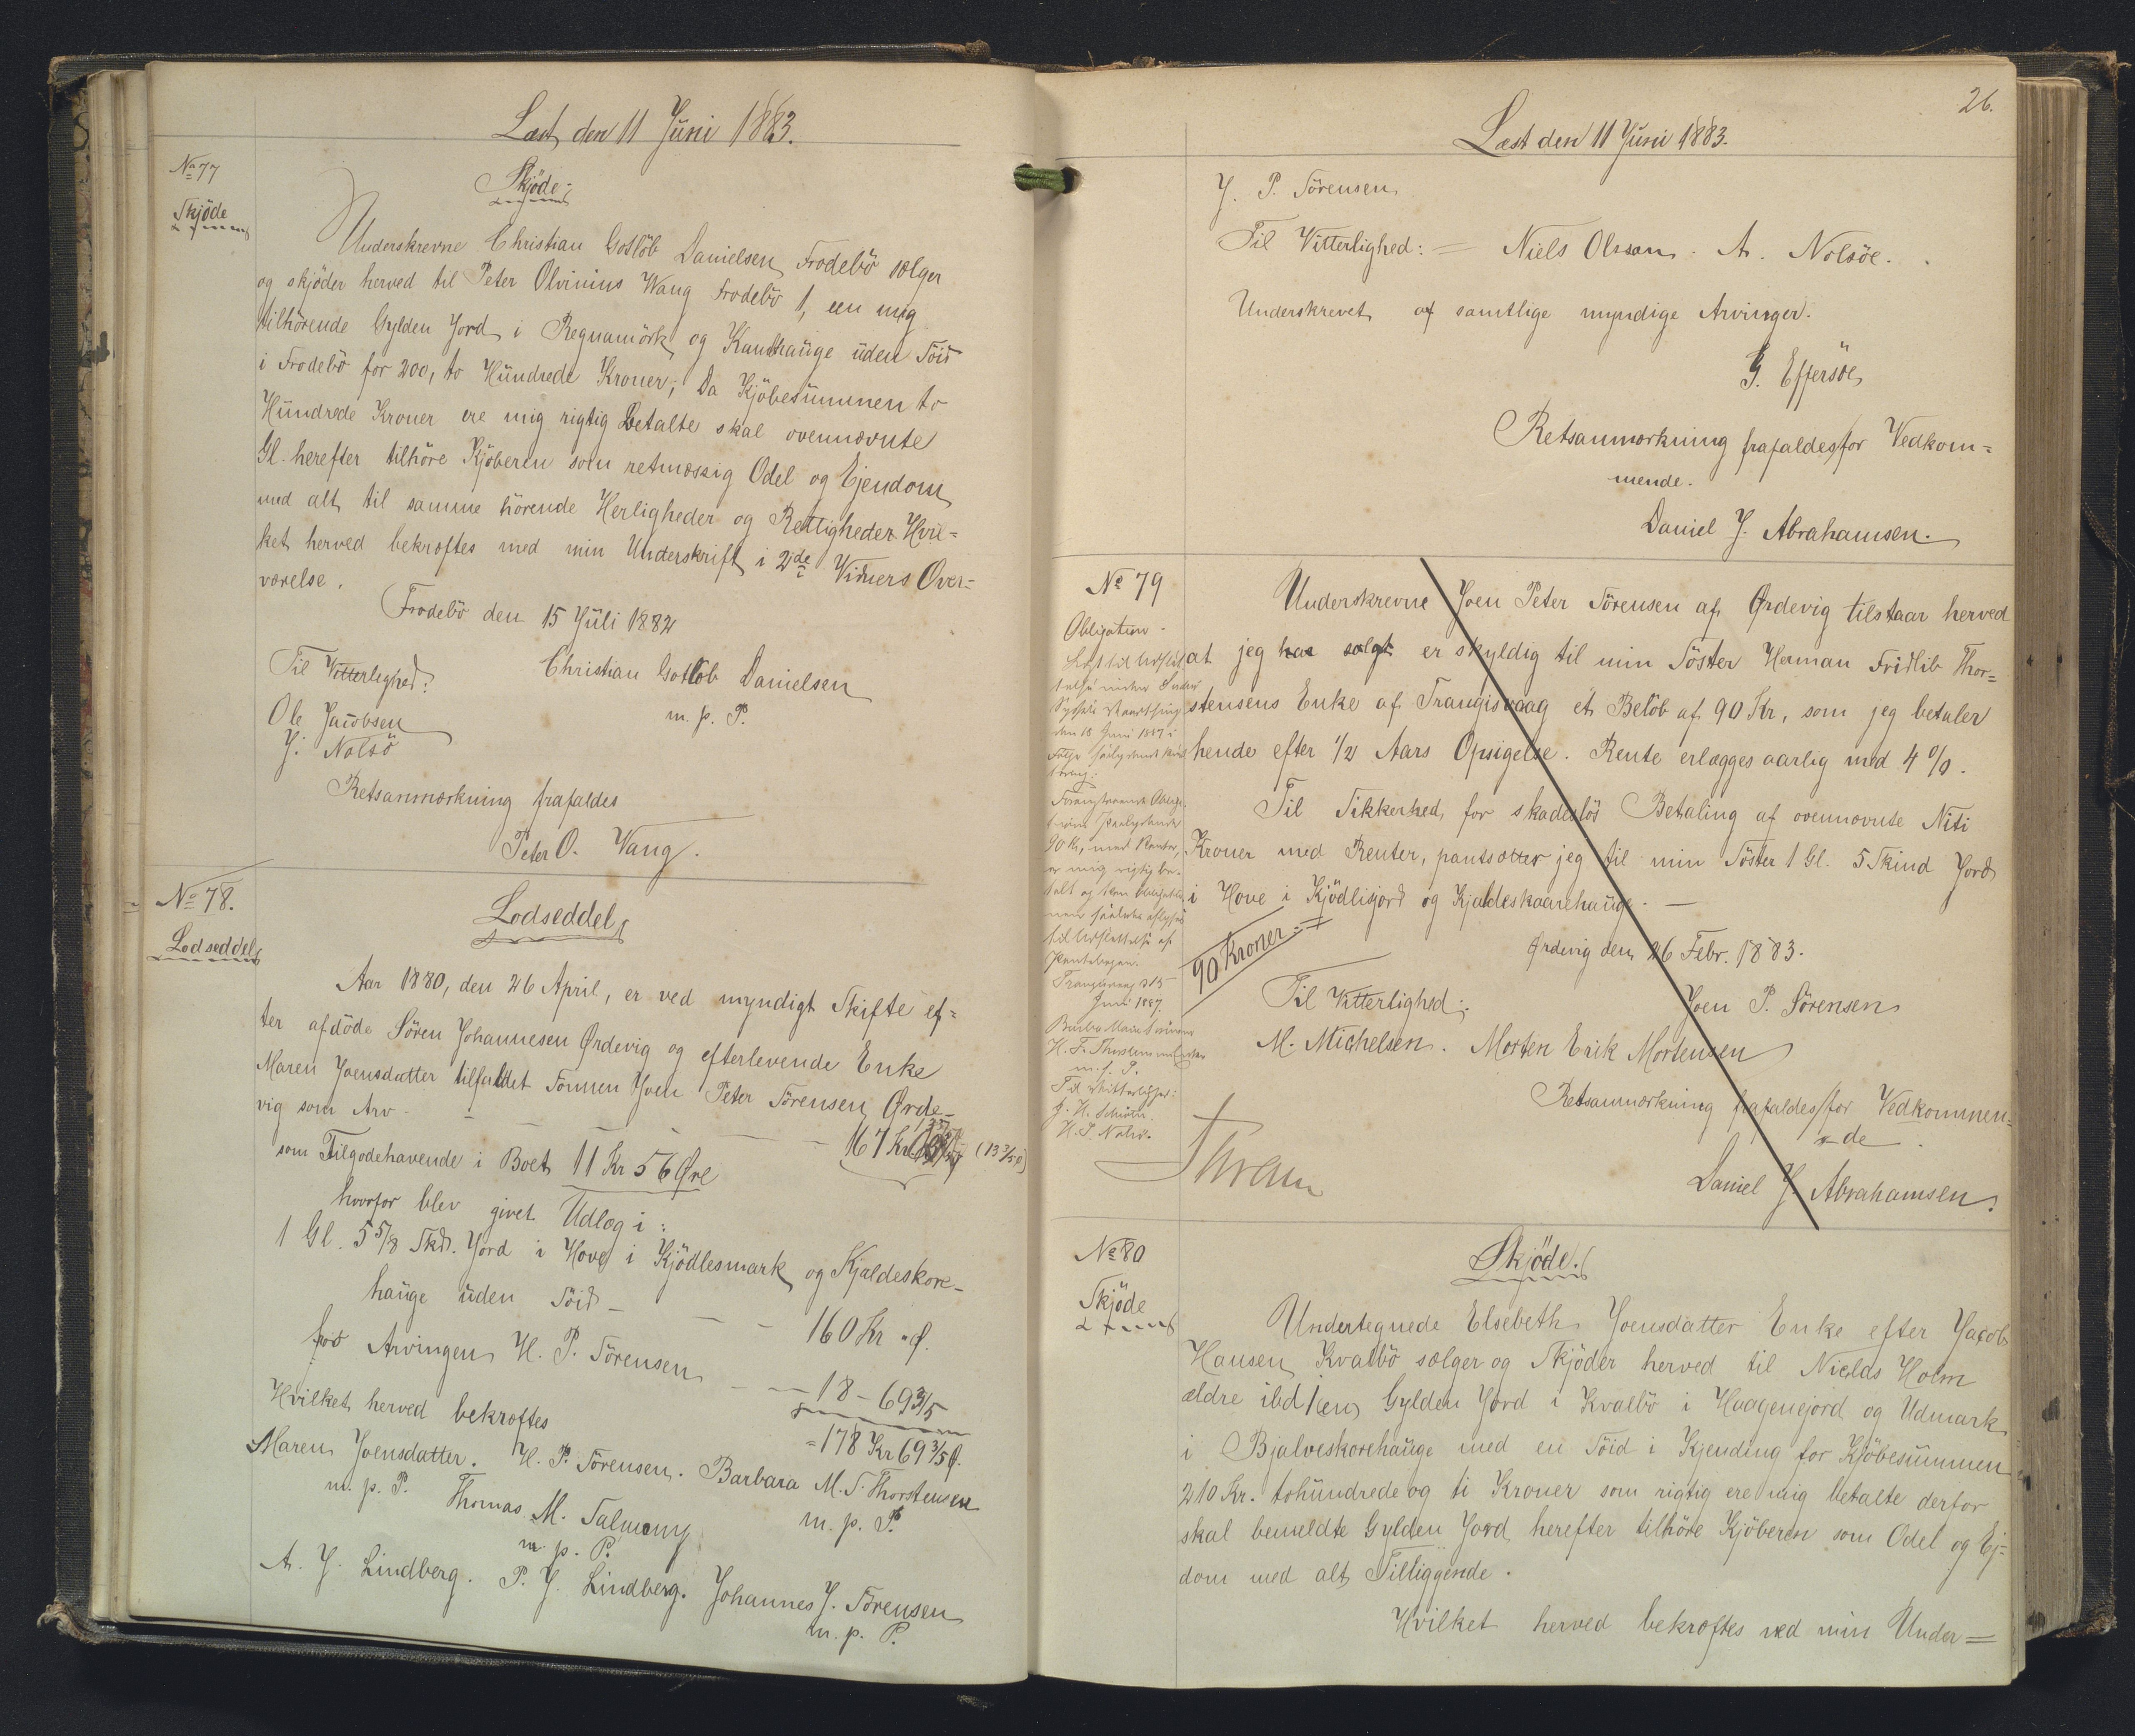 Læst den 11 Juni 1883.
No 77
Skjöde
Skjöde.
Underskrevne Christian Gotlöb Danielsen Frodebö sælger
og skjöder herved til Peter Olvinius Wang Frodebö 1, een mig
tilhörende Gylden Jord i Regnamörk og Kambhauge uden Söid
i Frodebö for 200, to Hundrede Kroner; Da Kjöbesummen to
Hundrede Kroner ere mig rigtig Betalte skal ovennævnte
Gl. herefter tilhöre Kjöberen som retmæssig Odel og Ejendom
med alt til samme hörende Herligheder og Rettigheder Hvil=
ket herved bekræftes med min Underskrift i 2de Vidners Over=
værelse.
Frodebö den 15 Juli 1882
Til Vitterlighed:
Christian Gotlöb Danielsen
m. p. P.
Ole Jacobsen
J. Nolsö
Retsanmærkning frafaldes
Peter O. Wang.
No 78.
Lodseddel
Lodseddel
Aar 1880, den 26 April, er ved myndigt Skifte ef=
ter afdöde Sören Johannesen Ørdevig og efterlevende Enke
Maren Joensdatter tilfaldet Sönnen Joen Peter Sörensen Ørde-
vig som Arv - - - - - 167 Kr (13 3/5 Ø)
som Tilgodehavende i Boet 11 Kr 56 Øre
hvorfor blev givet Udlæg i:
1 Gl. 5 5/8 Skd. Jord i Hove i Kjödlesmark og Kjaldeskore-
hauge uden Söid - - - 160 Kr " Ø.
hos Arvingen H. P. Sörensen - - 18 - 69 3/5
= 178 Kr 69 3/5 Ø.
Hvilket herved bekræftes
Maren Joensdatter. H. P. Sörensen. Barbara M. S. Thorstensen
m. p. P. m. p. P.
Thomas M. Talmony
m. p. P.
A. J. Lindberg. P. J. Lindberg. Johannes J. Sörensen
m. p. P.
26.
Læst den 11 Juni 1883.
J. P. Sörensen
Til Vitterlighed: = Niels Olsson. A. Nolsöe.
Underskrevet af samtlige myndige Arvinger.
G. Effersöe
Retsanmærkning frafaldes/for Vedkom=
mende.
Daniel J. Abrahamsen.
No 79
Obligation.
Underskrevne Joen Peter Sörensen af Ørdevig tilstaar herved
at jeg har solgt er skyldig til min Söster Herman Fridlib Thor=
stensens Enke af Trangisvaag et Belöb af 90 Kr, som jeg betaler
hende efter 1/2 Aars Opsigelse. Rente erlægges aarlig med 4 %.
Til Sikkerhed for skadeslös Betaling af ovennævnte Niti
Kroner med Renter, pantsætter jeg til min Söster 1 Gl. 5 Skind Jord
i Hove i Kjödlisjord og Kjaldeskaarehauge. -
90 Kroner =
Ørdevig den 26 Febr. 1883.
Til Vitterlighed:
Joen P. Sörensen
M. Michelsen. Morten Erik Mortensen
Retsanmærkning frafaldes/for Vedkommen=
de.
Daniel J. Abrahamsen.
den 18 Juni 1887 i
90 Kr, med Renter,
er mig rigtig be-
talt og kan Obligatio
til Udslettelse af
Pantebogen.
Juni 1887.
m. p. P.
Til Vitterlighed:
No 80
Skjöde
Skjöde.
Undertegnede Elsebeth Joensdatter Enke efter Jacob
Hansen Kvalbö sælger og Skjöder herved til Niclas Holm
ældre ibd 1 en Gylden Jord i Kvalbö i Haagenejord og Udmark
i Bjalveskorehauge med en Söid i Kjending for Kjöbesummen
210 Kr. tohundrede og ti Kroner som rigtig ere mig betalte derfor
skal bemeldte Gylden Jord herefter tilhöre Kjöberen som Odel og Ej=
dom med alt Tilliggende.
Hvilket herved bekræftes ved min Under=